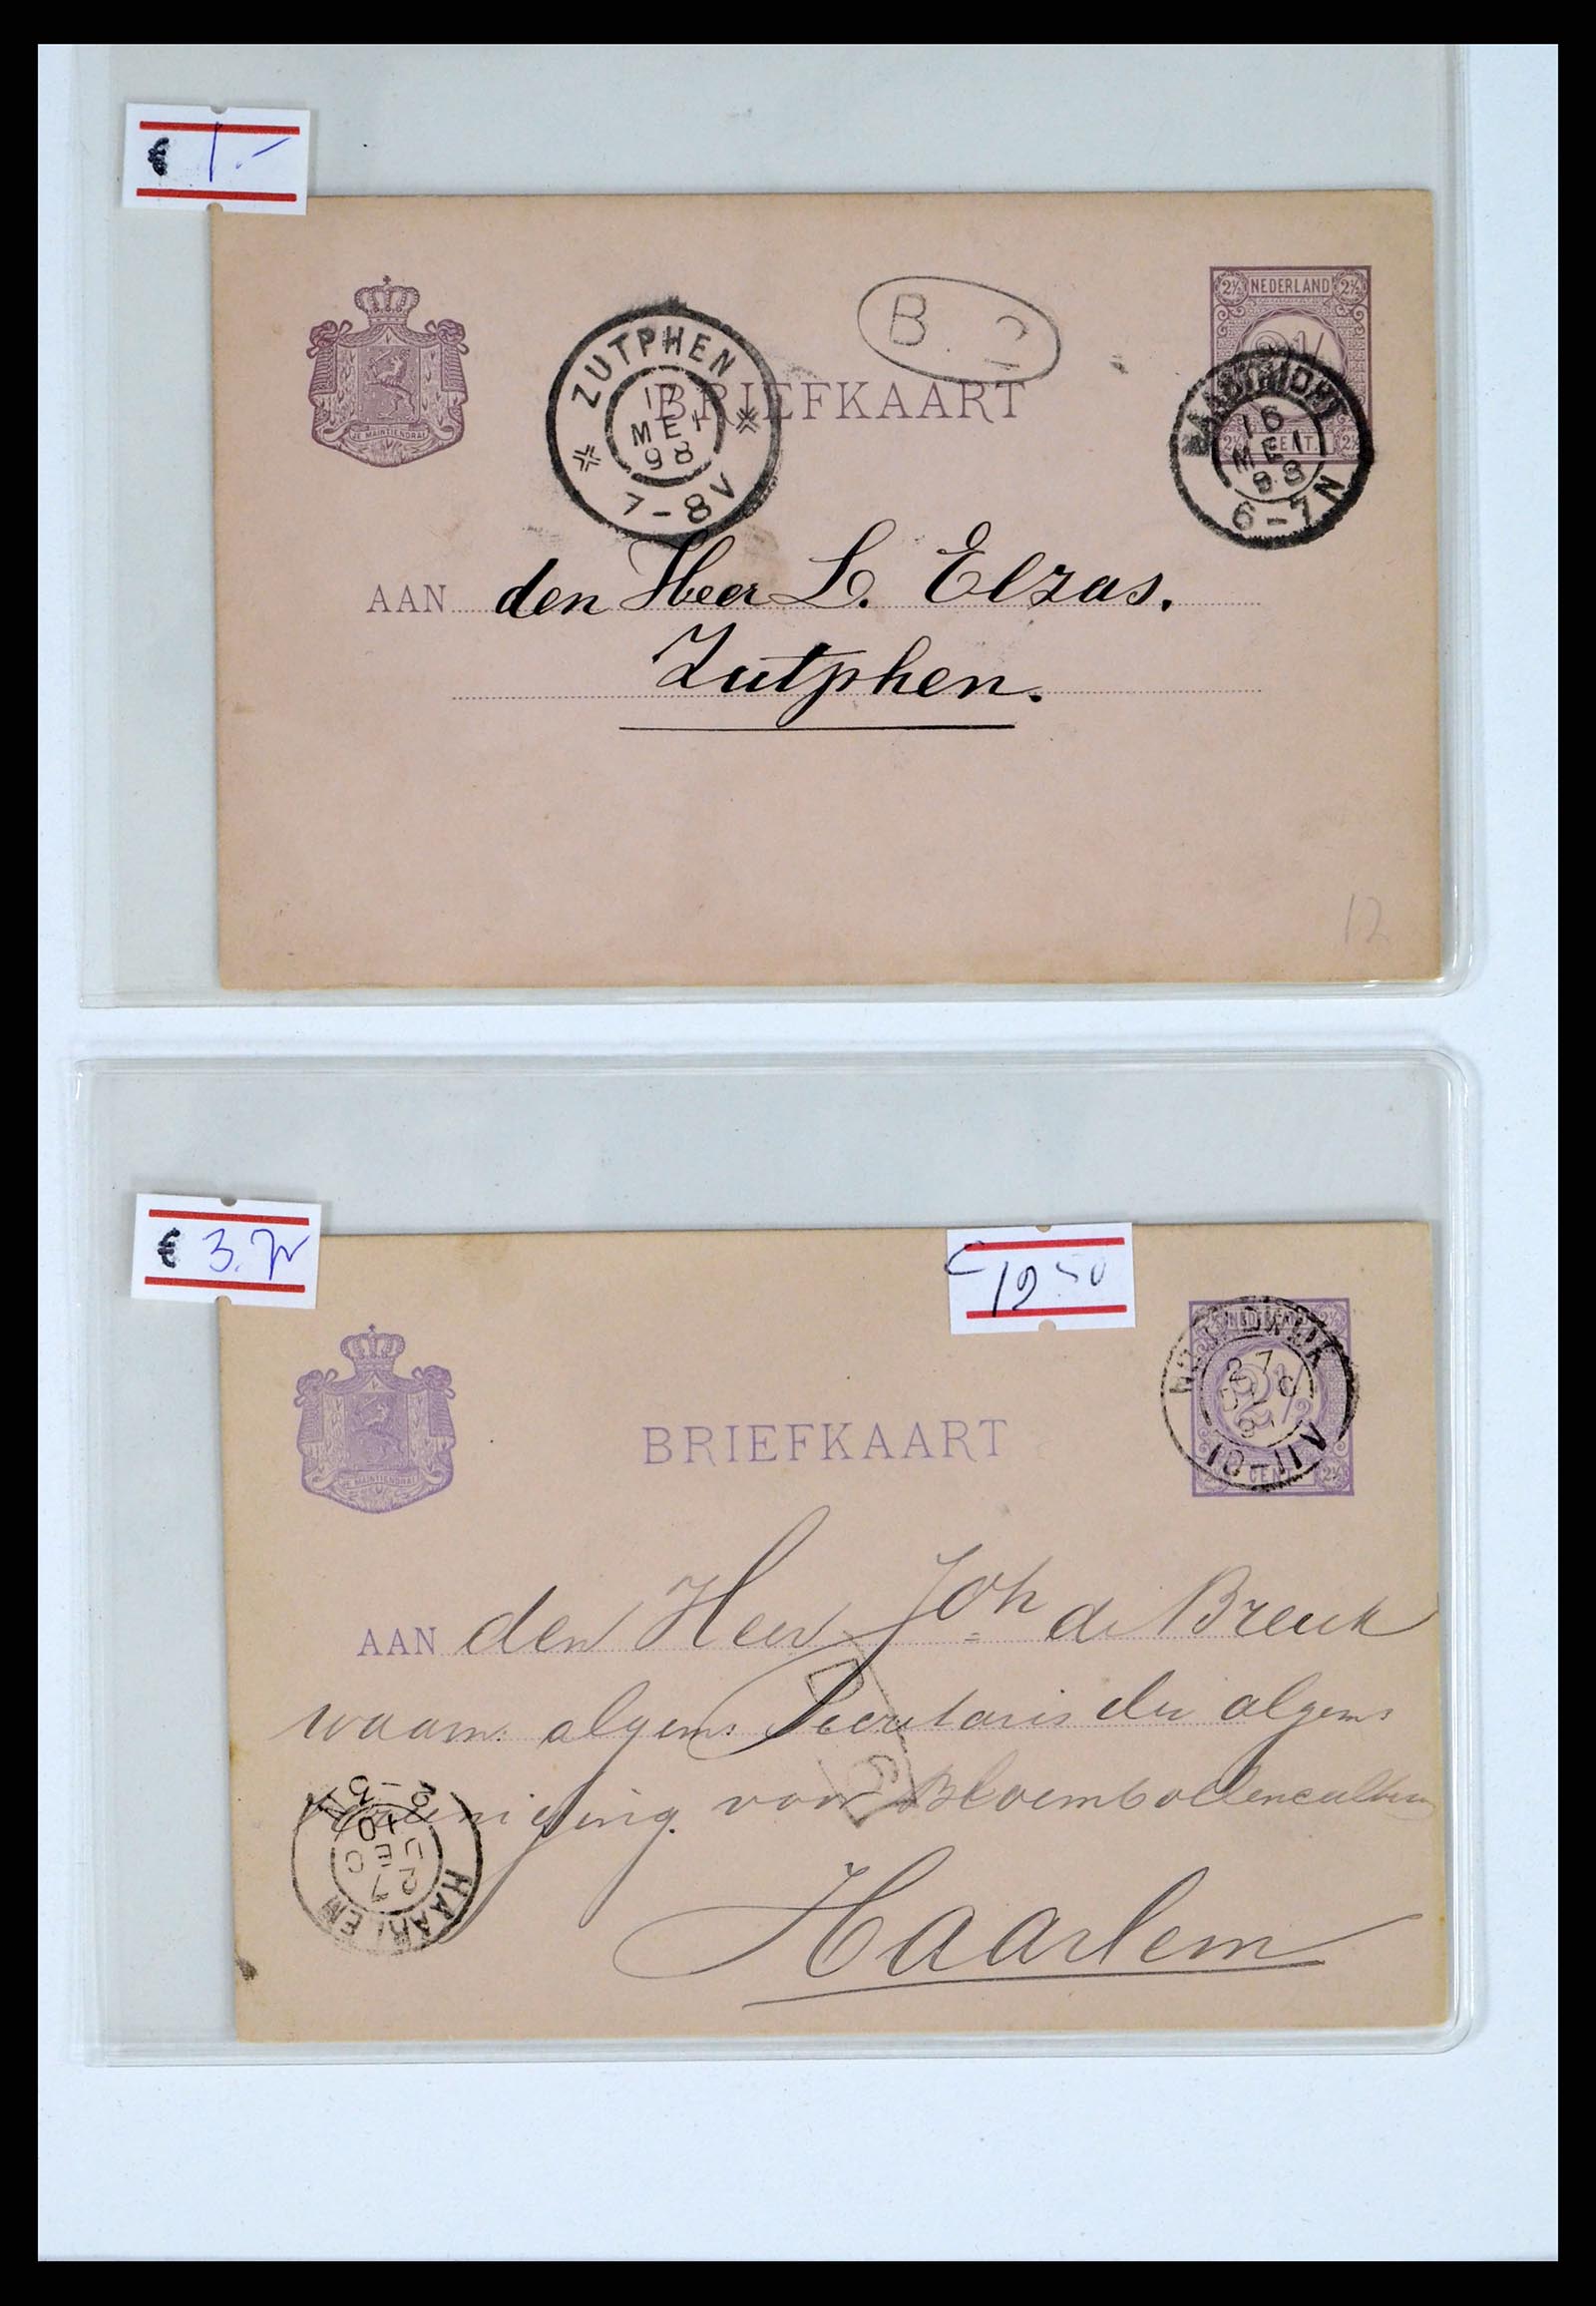 € 1.-
2½ NEDERLAND 2½
2½ CENT. 2½
JE MAINTIENDRAI
ZUTPHEN
17
MEI
98
7-8V
B.
BRIEFKAART
MAASTRICHT
16
MEI
98
6-7N
AAN den Heer L. Elzas.
Zutphen.
12
€ 3.
€ 19.50
JE MAINTIENDRAI
BRIEFKAART
2½
CENT. 2½
27
10-11V
AAN den Heer Joh de Breuk
waarn: algem: Secretaris der algem:
Vereeniging voor Bloembollencultuur
Haarlem
2-3N
27
DEC
HAARLEM